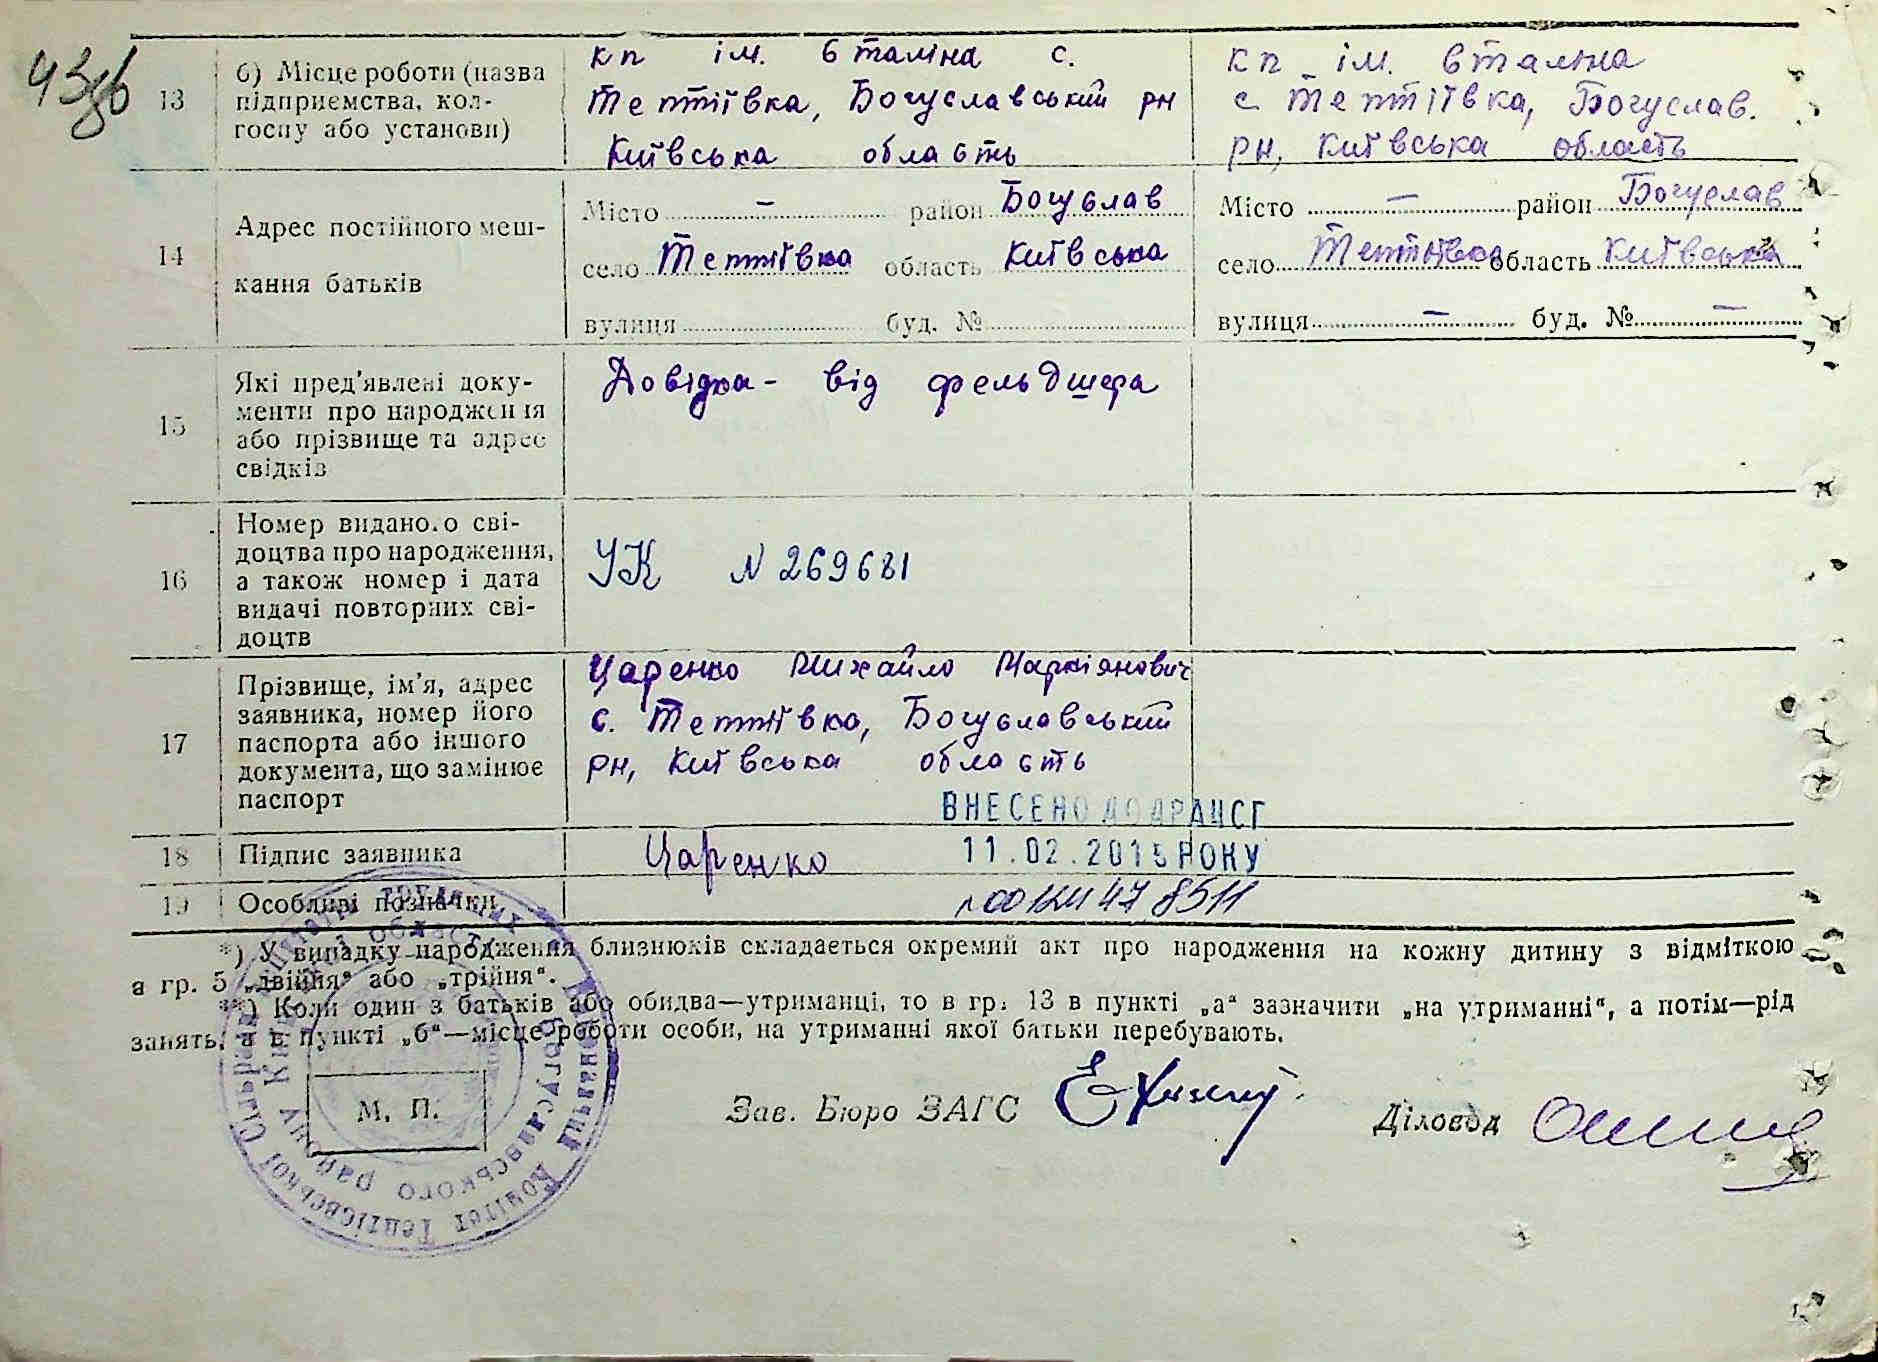 43зв
13
б) Місце роботи (назва
підприємства, кол-
госпу або установи)
кп ім. Сталіна с.
Тептіївка, Богуславський рн
Київська область
кп ім. Сталіна
с. Тептіївка, Богуслав.
рн, Київська область
14
Адрес постійного меш-
кання батьків
Місто – район Богуслав
село Тептіївка область Київська
вулиця буд. №
Місто — район Богуслав
село Тептіївка область Київська
вулиця — буд. № —
15
Які пред'явлені доку-
менти про народження
або прізвище та адрес
свідків
Довідка - від фельдшера
16
Номер виданого сві-
доцтва про народження,
а також номер і дата
видачі повторних сві-
доцтв
УК N 269681
17
Прізвище, ім'я, адрес
заявника, номер його
паспорта або іншого
документа, що замінює
паспорт
Царенко Михайло Маркіянович
с. Тептіївка, Богуславський
рн, Київська область
ВНЕСЕНО ДО ДРАЦСГ
11.02.2015 РОКУ
18
Підпис заявника
Царенко
19
Особливі позначки
*) У випадку народження близнюків складається окремий акт про народження на кожну дитину з відміткою
а гр. 5 „двійня“ або „трійня“.
**) Коли один з батьків або обидва—утриманці, то в гр. 13 в пункті „а“ зазначити „на утриманні“, а потім—рід
занять, а в пункті „б“—місце роботи особи, на утриманні якої батьки перебувають.
М. П.
Виконавчий Комітет Тептіївської Сільради депутатів трудящих
Богуславського району Київської області
Зав. Бюро ЗАГС
Діловод